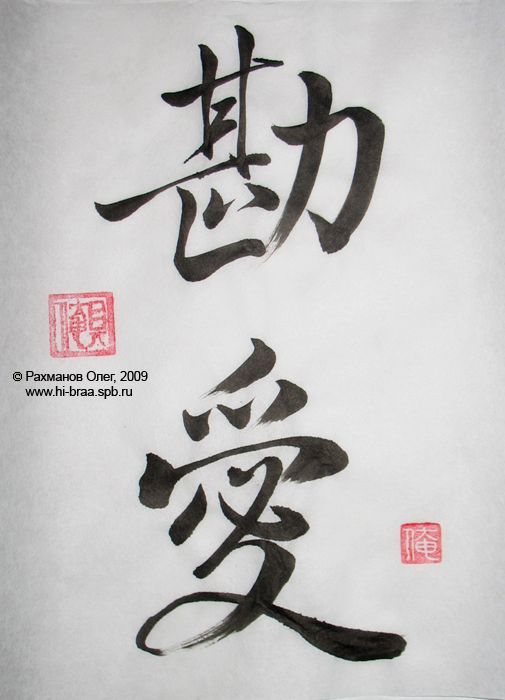 勘
© Рахманов Олег, 2009
www.hi-braa.spb.ru
愛
俺